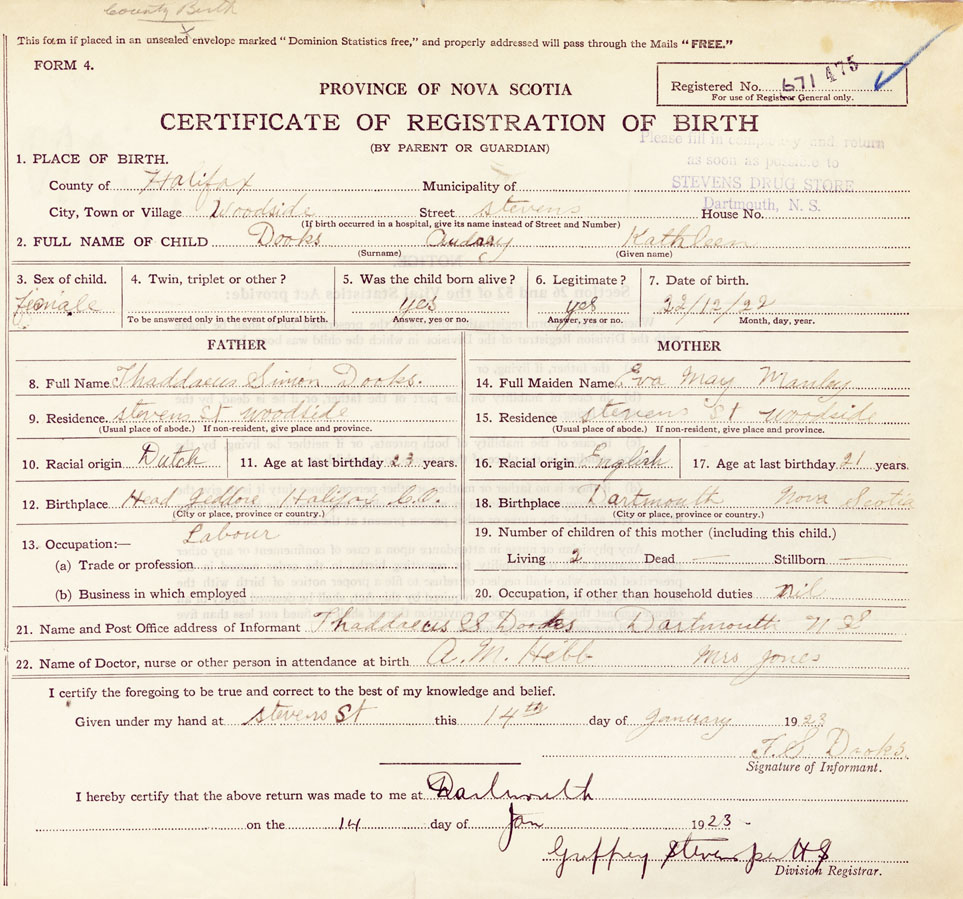 County Birth
This form if placed in an unsealed envelope marked "Dominion Statistics free," and properly addressed will pass through the Mails "FREE."
FORM 4.
Registered No. 671475
For use of Registrar General only.
PROVINCE OF NOVA SCOTIA
CERTIFICATE OF REGISTRATION OF BIRTH
(BY PARENT OR GUARDIAN)
Please fill in completely and return
as soon as possible to
STEVENS DRUG STORE
Dartmouth, N. S.
1. PLACE OF BIRTH.
County of Halifax Municipality of
City, Town or Village Woodside Street stevens House No.
(If birth occurred in a hospital, give its name instead of Street and Number)
2. FULL NAME OF CHILD Dooks Audrey Kathleen
(Surname) (Given name)
3. Sex of child. 4. Twin, triplet or other? 5. Was the child born alive? 6. Legitimate? 7. Date of birth.
female yes yes 22/12/22
To be answered only in the event of plural birth. Answer, yes or no. Answer, yes or no. Month, day, year.
FATHER
8. Full Name Thaddaeus Simon Dooks.
9. Residence. stevens St woodside
(Usual place of abode.) If non-resident, give place and province.
10. Racial origin Dutch 11. Age at last birthday 23 years.
12. Birthplace Head Jeddore Halifax Co.
(City or place, province or country.)
13. Occupation:— Labour
(a) Trade or profession
(b) Business in which employed
MOTHER
14. Full Maiden Name Eva May Manley
15. Residence stevens St woodside
(Usual place of abode.) If non-resident, give place and province.
16. Racial origin English 17. Age at last birthday 21 years.
18. Birthplace Dartmouth Nova Scotia
(City or place, province or country.)
19. Number of children of this mother (including this child.)
Living 2 Dead — Stillborn —
20. Occupation, if other than household duties nil
21. Name and Post Office address of Informant Thaddaeus S Dooks Dartmouth N S
22. Name of Doctor, nurse or other person in attendance at birth A. M. Hebb Mrs Jones
I certify the foregoing to be true and correct to the best of my knowledge and belief.
Given under my hand at stevens St this 14th day of january 1923
T. S Dooks.
Signature of Informant.
I hereby certify that the above return was made to me at Dartmouth
on the 14 day of Jan 1923 -
Stevens per
Division Registrar.